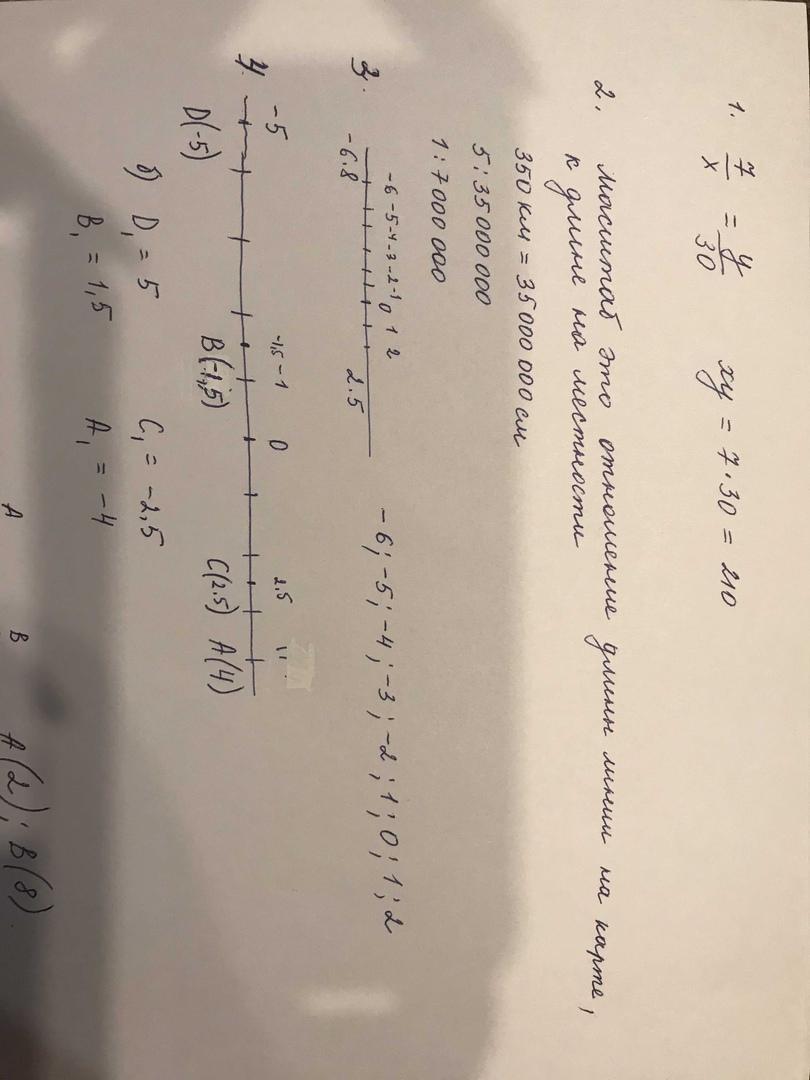 1. 7/x = y/30 xy = 7·30 = 210
2. масштаб это отношение длины линии на карте,
к длине на местности
350 км = 35 000 000 см
5:35 000 000
1:7 000 000
3. -6 -5 -4 -3 -2 -1 0 1 2 -6; -5; -4; -3; -2; 1; 0; 1; 2
-6.8 2.5
4. -5 -1,5 -1 0 2,5
D(-5) B(-1,5) C(2.5) A(4)
б) D₁ = 5 C₁ = -2,5
B₁ = 1,5 A₁ = -4
A B A(2); B(8)